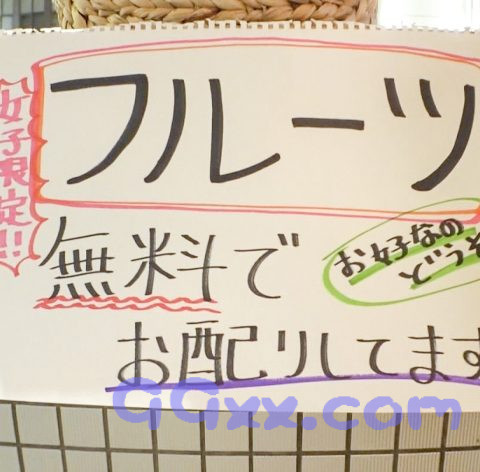 女子限定!!
フルーツ
無料で
お好なの
どうぞ
お配りしてます
GGxx.com